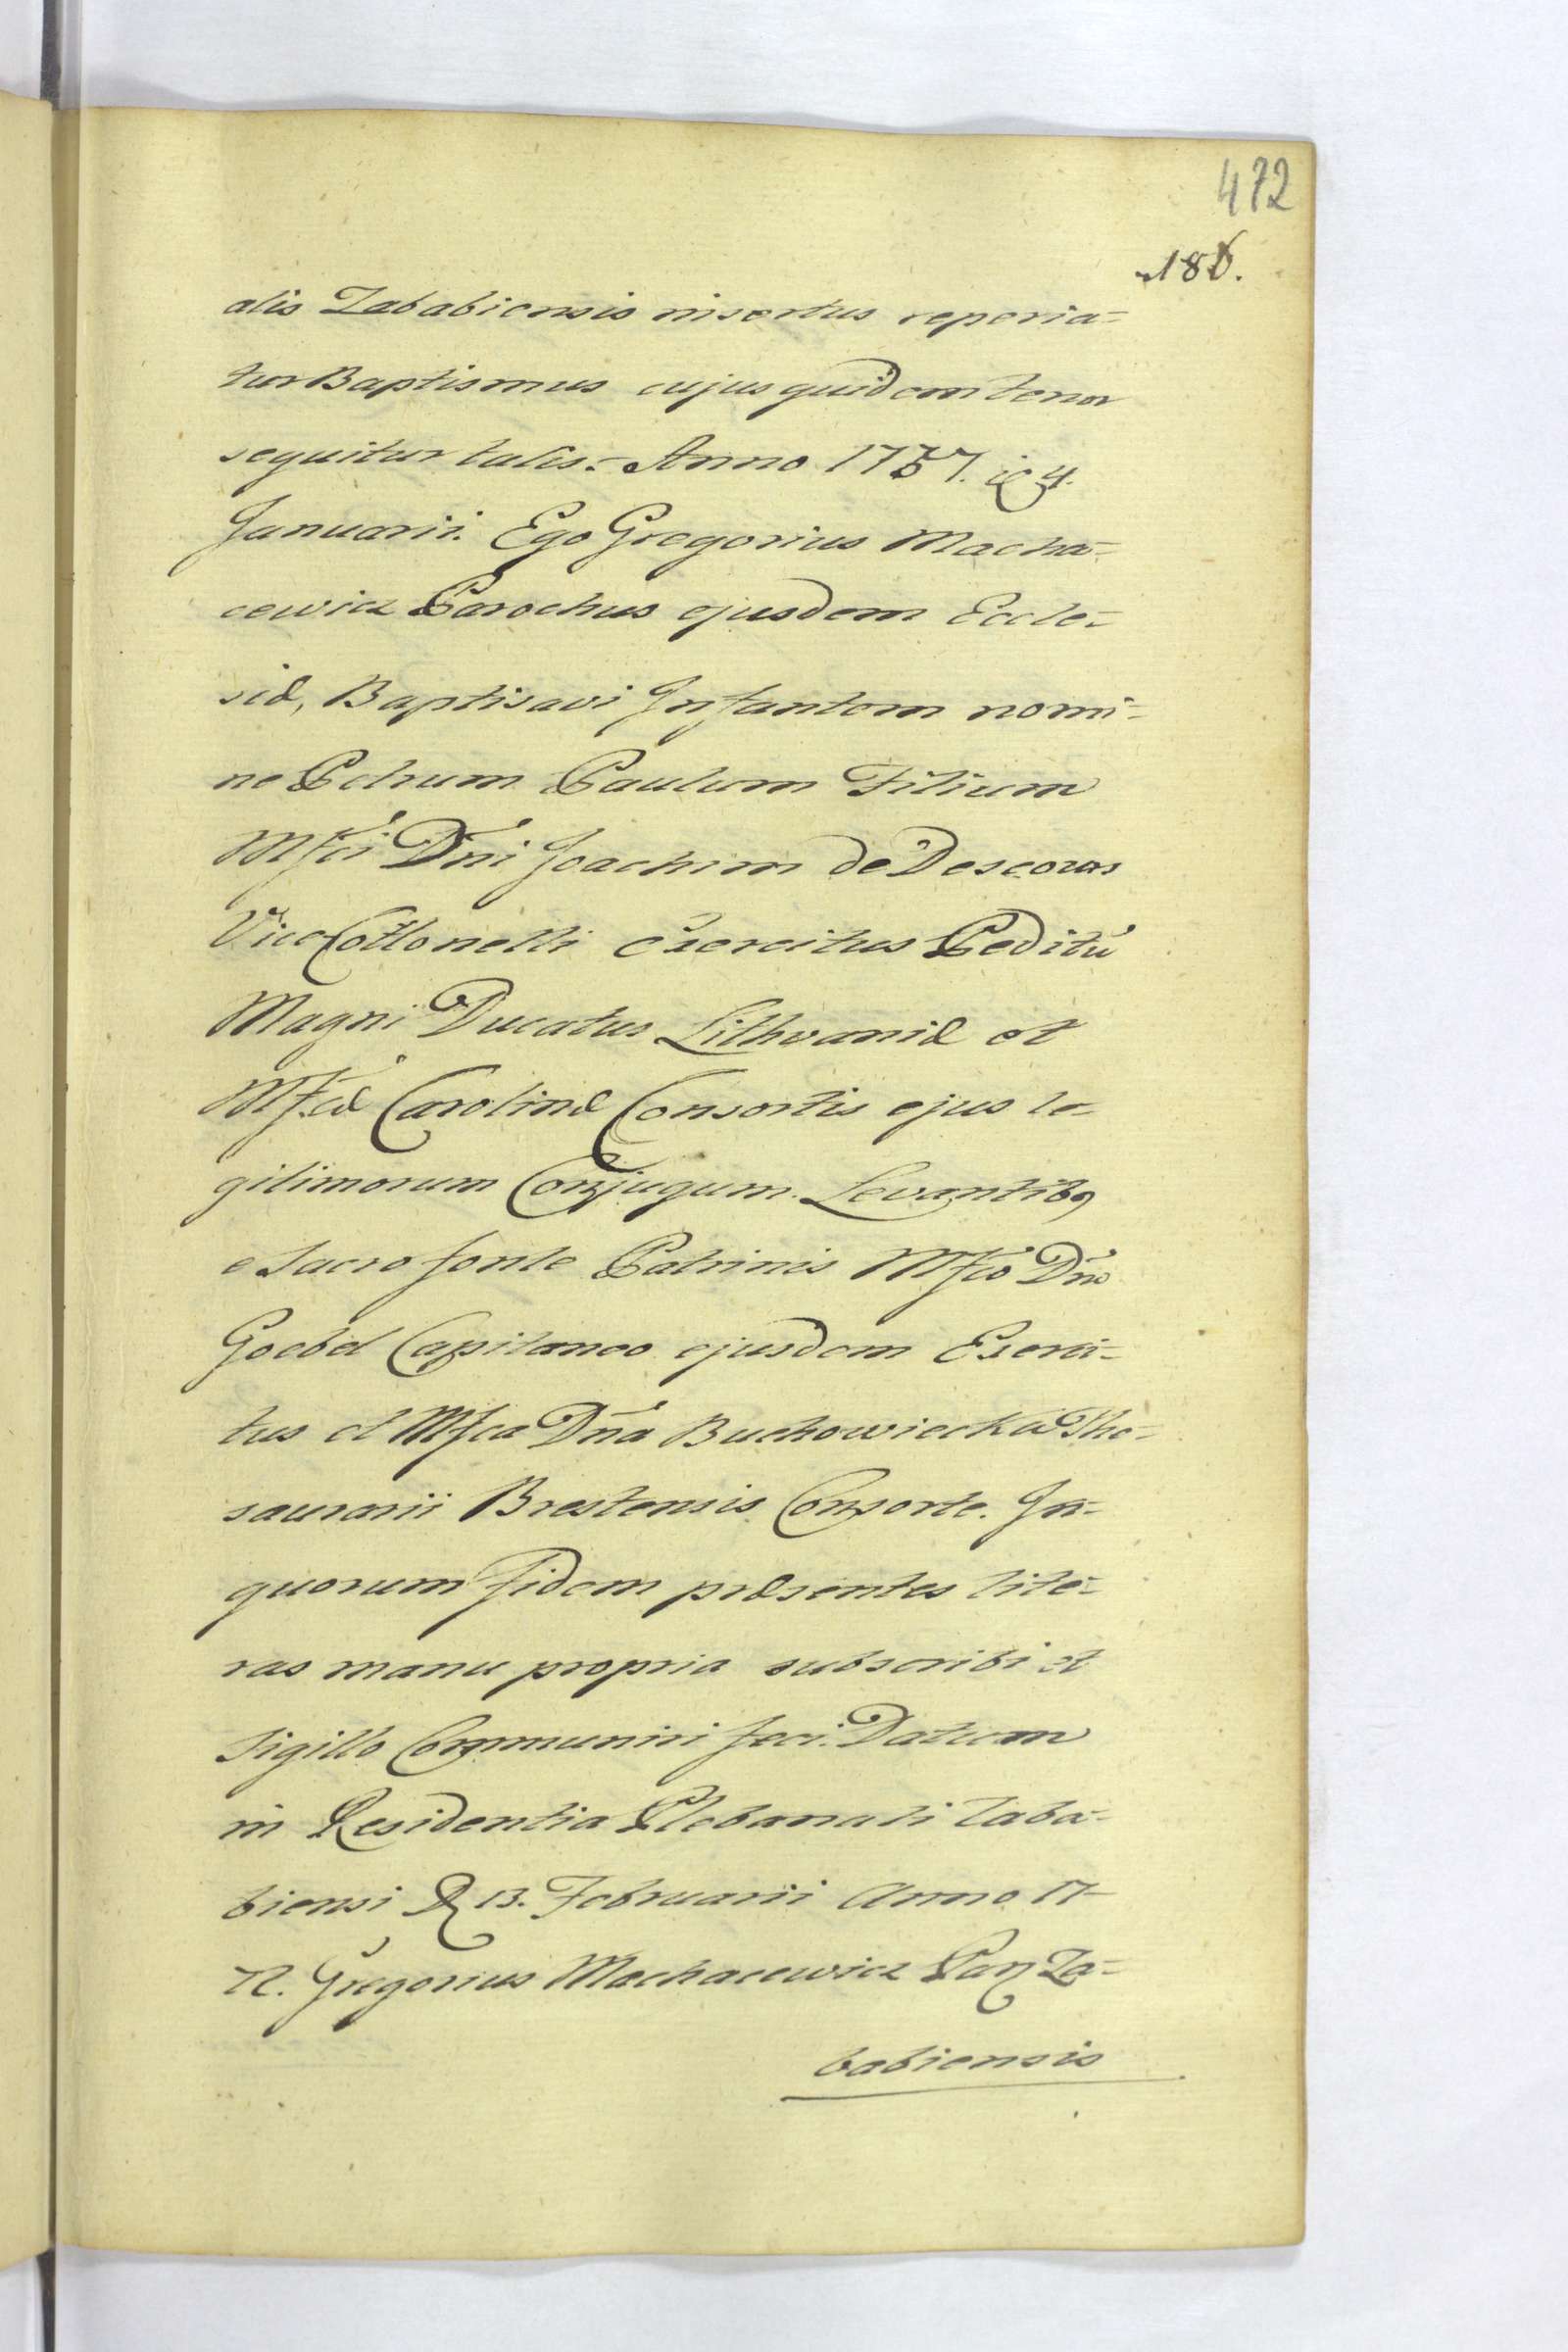 472
186.
alis Zababiensis insertus reperia=
tur Baptismus cujus quidem tenor
sequitur talis.= Anno 1757. 4.
Januarii. Ego Gregorius Macha=
cewicz Parochus ejusdem Eccle=
siæ, Baptisavi Infantem nomi=
ne Petrum Paulum Filium
Mfci Dni Joachim de Descours
Vice Collonelli Exercitus Peditũ
Magni Ducatus Lithvaniæ et
Mfcæ Carolinæ Consortis ejus le=
gitimorum Conjugum. Levantibꝰ
e Sacro fonte Patrinis Mfco Dno
Goebel Capitaneo ejusdem Exerci=
tus et Mfca Dna Buchowiecka The=
saurarii Brestensis Consorte. In=
quorum fidem præsentes lite=
ras manu propria subscribi et
Sigillo Communiri feci. Datum
in Residentia Plebanali Zaba=
biensi D 13. Februarii Anno 17=
72. Gregorius Machacewicz Par Za=
babiensis